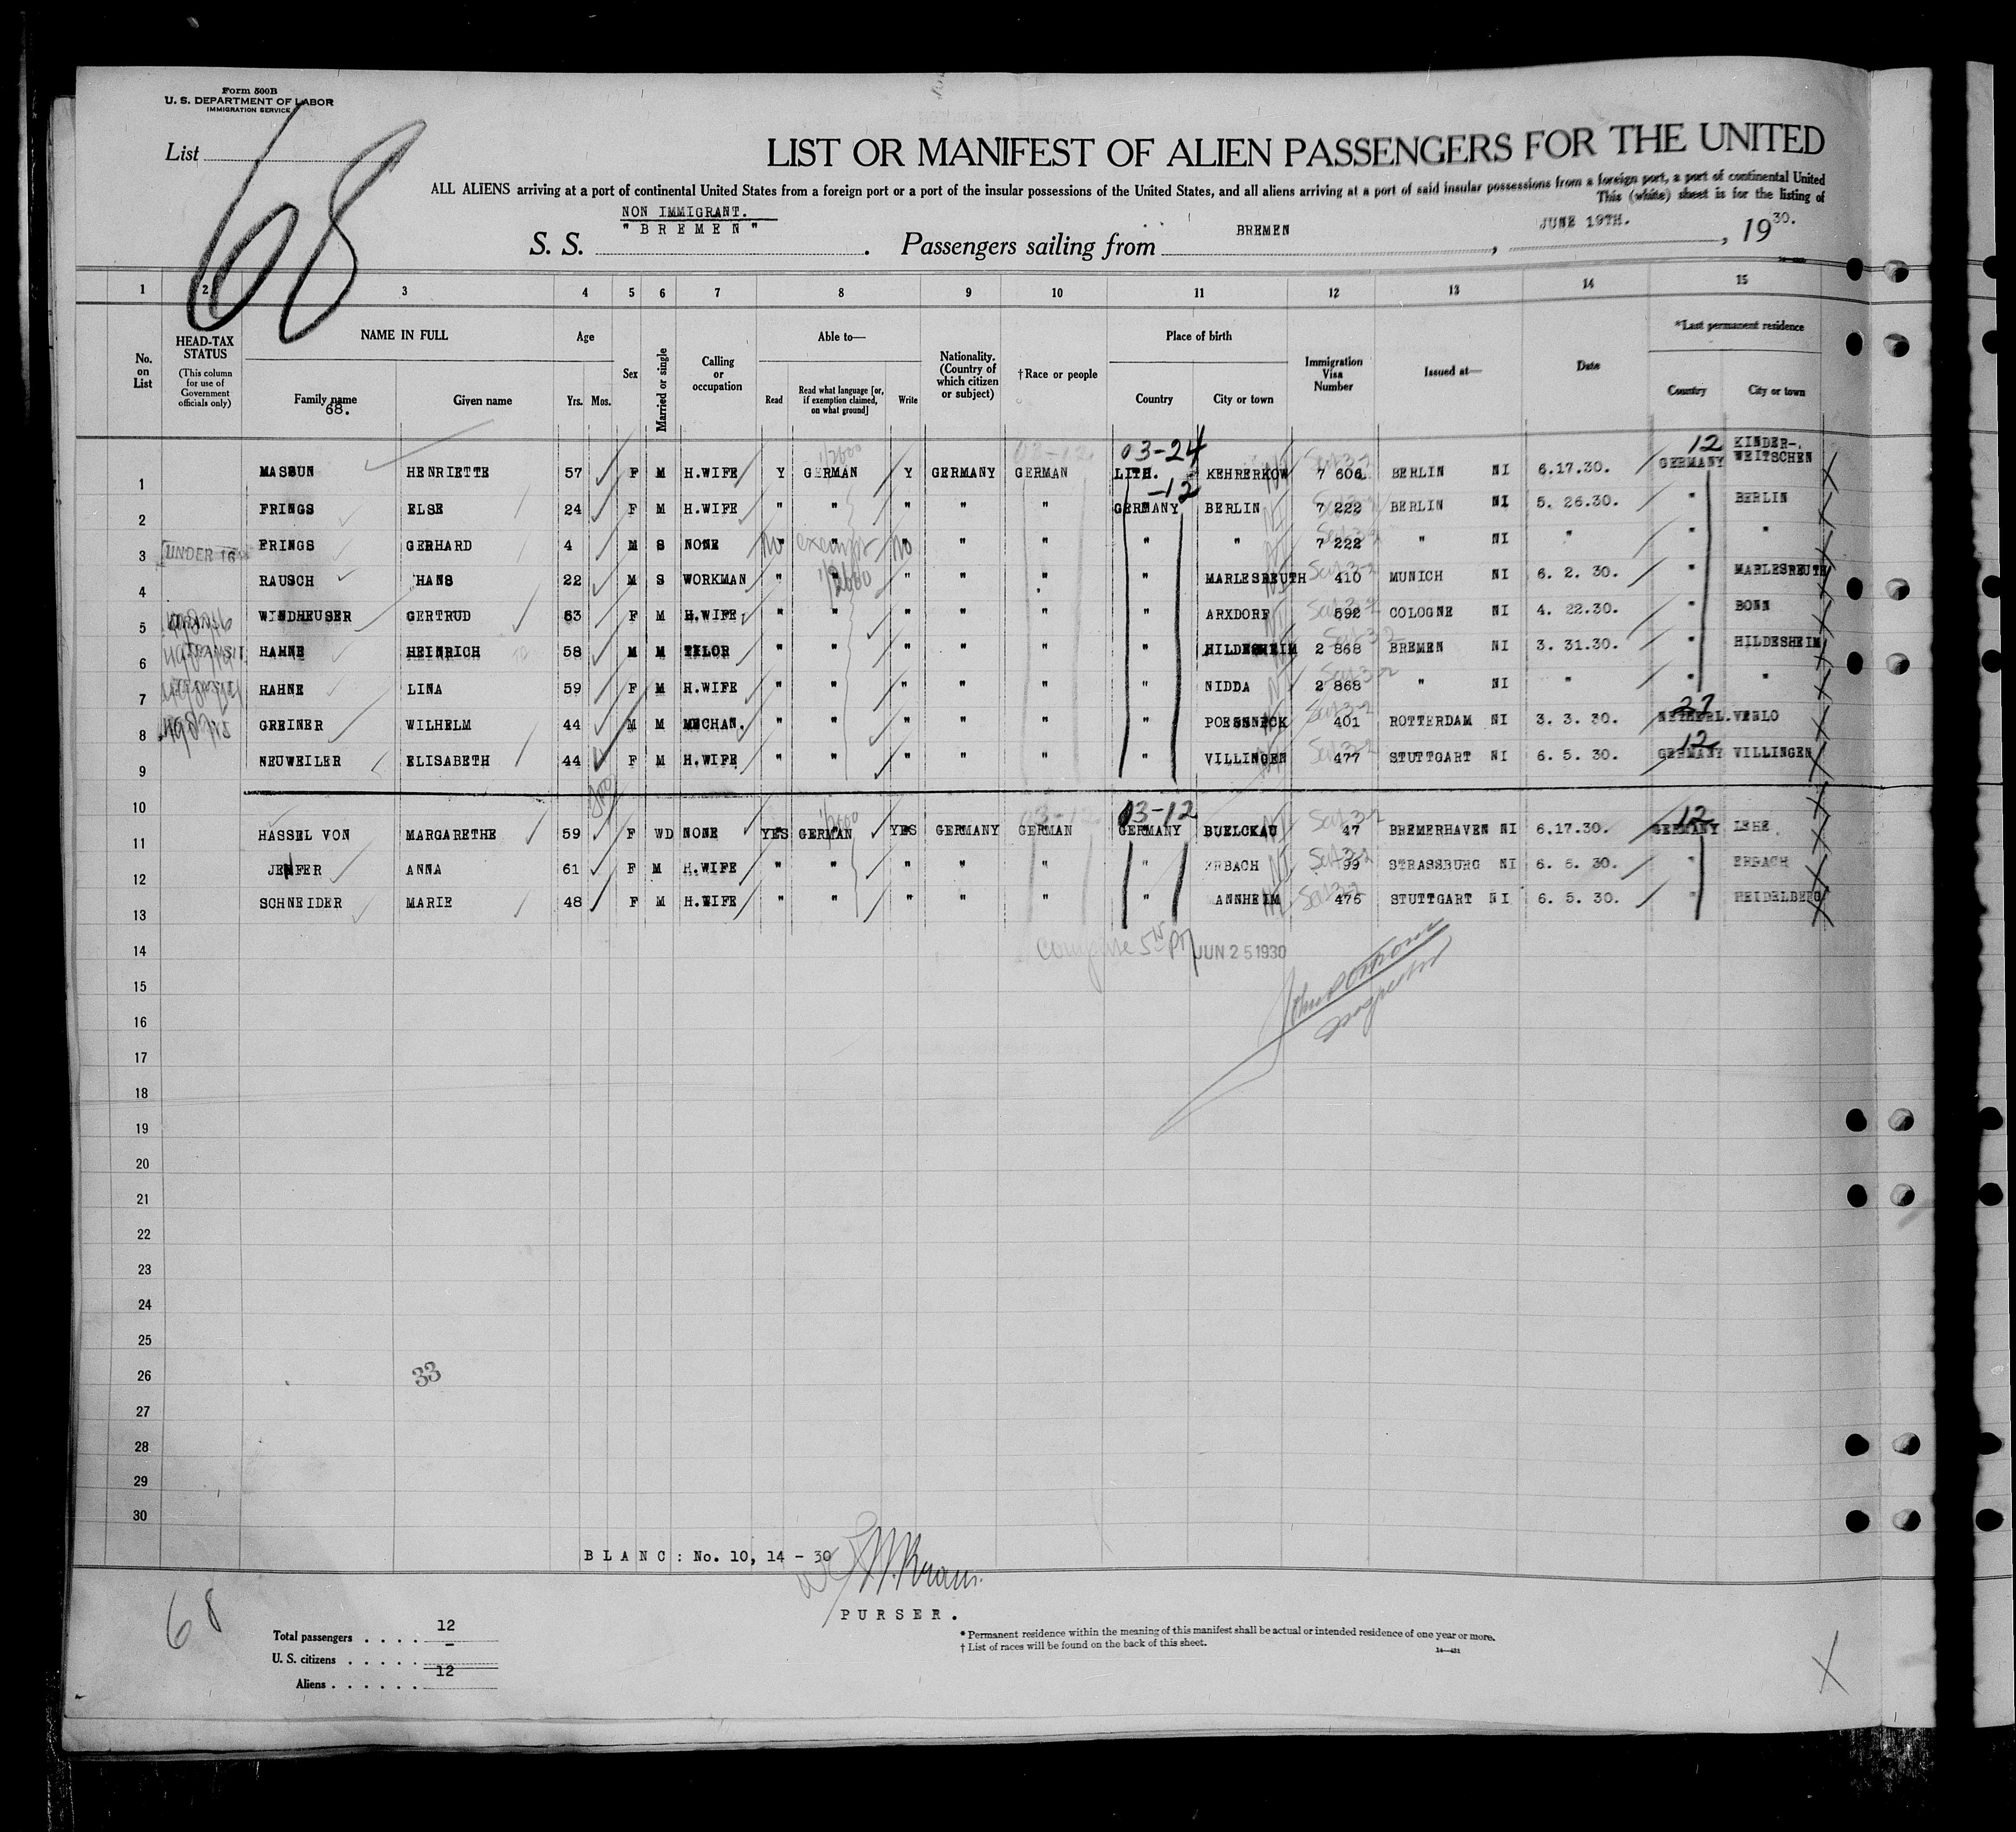 Form 500B
U. S. DEPARTMENT OF LABOR
IMMIGRATION SERVICE
List
68
LIST OR MANIFEST OF ALIEN PASSENGERS FOR THE UNITED
ALL ALIENS arriving at a port of continental United States from a foreign port or a port of the insular possessions of the United States, and all aliens arriving at a port of said insular possessions from a foreign port, a port of continental United
This (white) sheet is for the listing of
NON IMMIGRANT.
S. S. "BREMEN". Passengers sailing from BREMEN, JUNE 19TH., 1930.
1 2 3 4 5 6 7 8 9 10 11 12 13 14 15
No. on List
HEAD-TAX STATUS (This column for use of Government officials only)
NAME IN FULL
Family name Given name
68.
Age
Yrs. Mos.
Sex
Married or single
Calling or occupation
Able to—
Read Read what language [or, if exemption claimed, on what ground] Write
Nationality. (Country of which citizen or subject)
†Race or people
Place of birth
Country City or town
Immigration Visa Number
Issued at—
Date
*Last permanent residence
Country City or town
03-12 03-24 12
1 MASSUN HENRIETTE 57 F M H.WIFE Y GERMAN Y GERMANY GERMAN LITH. KEHRERKOW 7 606 BERLIN NI 6.17.30. GERMANY KINDER-. WEITSCHEN
-12
2 FRINGS ELSE 24 F M H.WIFE " " " " " GERMANY BERLIN 7 222 BERLIN NI 5. 26.30. " BERLIN
3 UNDER 16 FRINGS GERHARD 4 M S NONE no exempt no " " " " 7 222 " NI " " "
4 RAUSCH HANS 22 M S WORKMAN " " " " " " MARLESREUTH 410 MUNICH NI 6. 2. 30. " MARLESREUTH
5 WINDHEUSER GERTRUD 63 F M H.WIFE " " " " " " ARXDORF 592 COLOGNE NI 4. 22.30. " BONN
6 TRANSIT HAHNE HEINRICH 58 M M TELOR " " " " " " HILDESHEIM 2 868 BREMEN NI 3. 31.30. " HILDESHEIM
7 HAHNE LINA 59 F M H.WIFE " " " " " " NIDDA 2 868 " NI " " "
27
8 GREINER WILHELM 44 M M MECHAN. " " " " " " POESSNECK 401 ROTTERDAM NI 3. 3. 30. NETHERL. VENLO
12
9 NEUWEILER ELISABETH 44 F M H.WIFE " " " " " " VILLINGEN 477 STUTTGART NI 6. 5. 30. GERMANY VILLINGEN
10
03-12 03-12 12
11 HASSEL VON MARGARETHE 59 F WD NONE YES GERMAN YES GERMANY GERMAN GERMANY BUELCKAU 47 BREMERHAVEN NI 6.17.30. GERMANY LEHE
12 JENFER ANNA 61 F M H.WIFE " " " " " " ERBACH 99 STRASSBURG NI 6. 6. 30. " ERBACH
13 SCHNEIDER MARIE 48 F M H.WIFE " " " " " " ANNHEIM 476 STUTTGART NI 6. 5. 30. " HEIDELBERG
14 JUN 25 1930
15
Inspector
16
17
18
19
20
21
22
23
24
25
26 33
27
28
29
30
BLANC: No. 10, 14 - 30
PURSER.
68
Total passengers . . . . 12
U. S. citizens . . . . . -
Aliens . . . . . . 12
* Permanent residence within the meaning of this manifest shall be actual or intended residence of one year or more.
† List of races will be found on the back of this sheet.